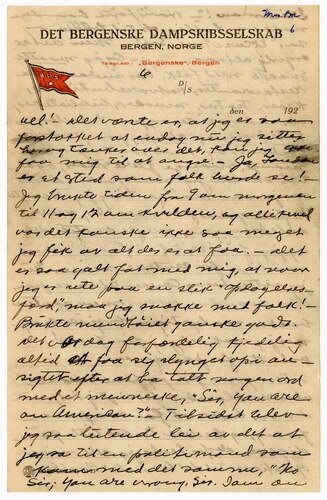 Mor Br
6
DET BERGENSKE DAMPSKIBSSELSKAB
BERGEN, NORGE
Telegr.adr.: „Bergenske", Bergen
6
D/S
den 192
vel! Det værste er, at jeg er saa
forstokket at endog naar jeg sitter
her og tænker over det, kan jeg ikke
faa mig til at angre. – Ja, London
er et sted som folk burde se! –
Jeg brukte tiden fra 9 om morgenen
til 11 og 12 om kvelden, og allikevel
var det kanske ikke saa meget
jeg fik av alt det er at faa. – Det
er saa galt fat med mig, at naar
jeg er ute paa en slik "Opdagelses-
færd," maa jeg snakke med folk! –
Brukte mundtøiet ganske godt.
Det var dog forfærdelig kjedelig
altid at faa sig slynget op i an-
sigtet efter at ha talt nogen ord
med et menneske, "Sir, you are
an American?" – Tilsidst blev
jeg saa leitende lei av det at
jeg sa til en politimand som
kom med det samme, "No
Sir, you are wrong, Sir. I am an